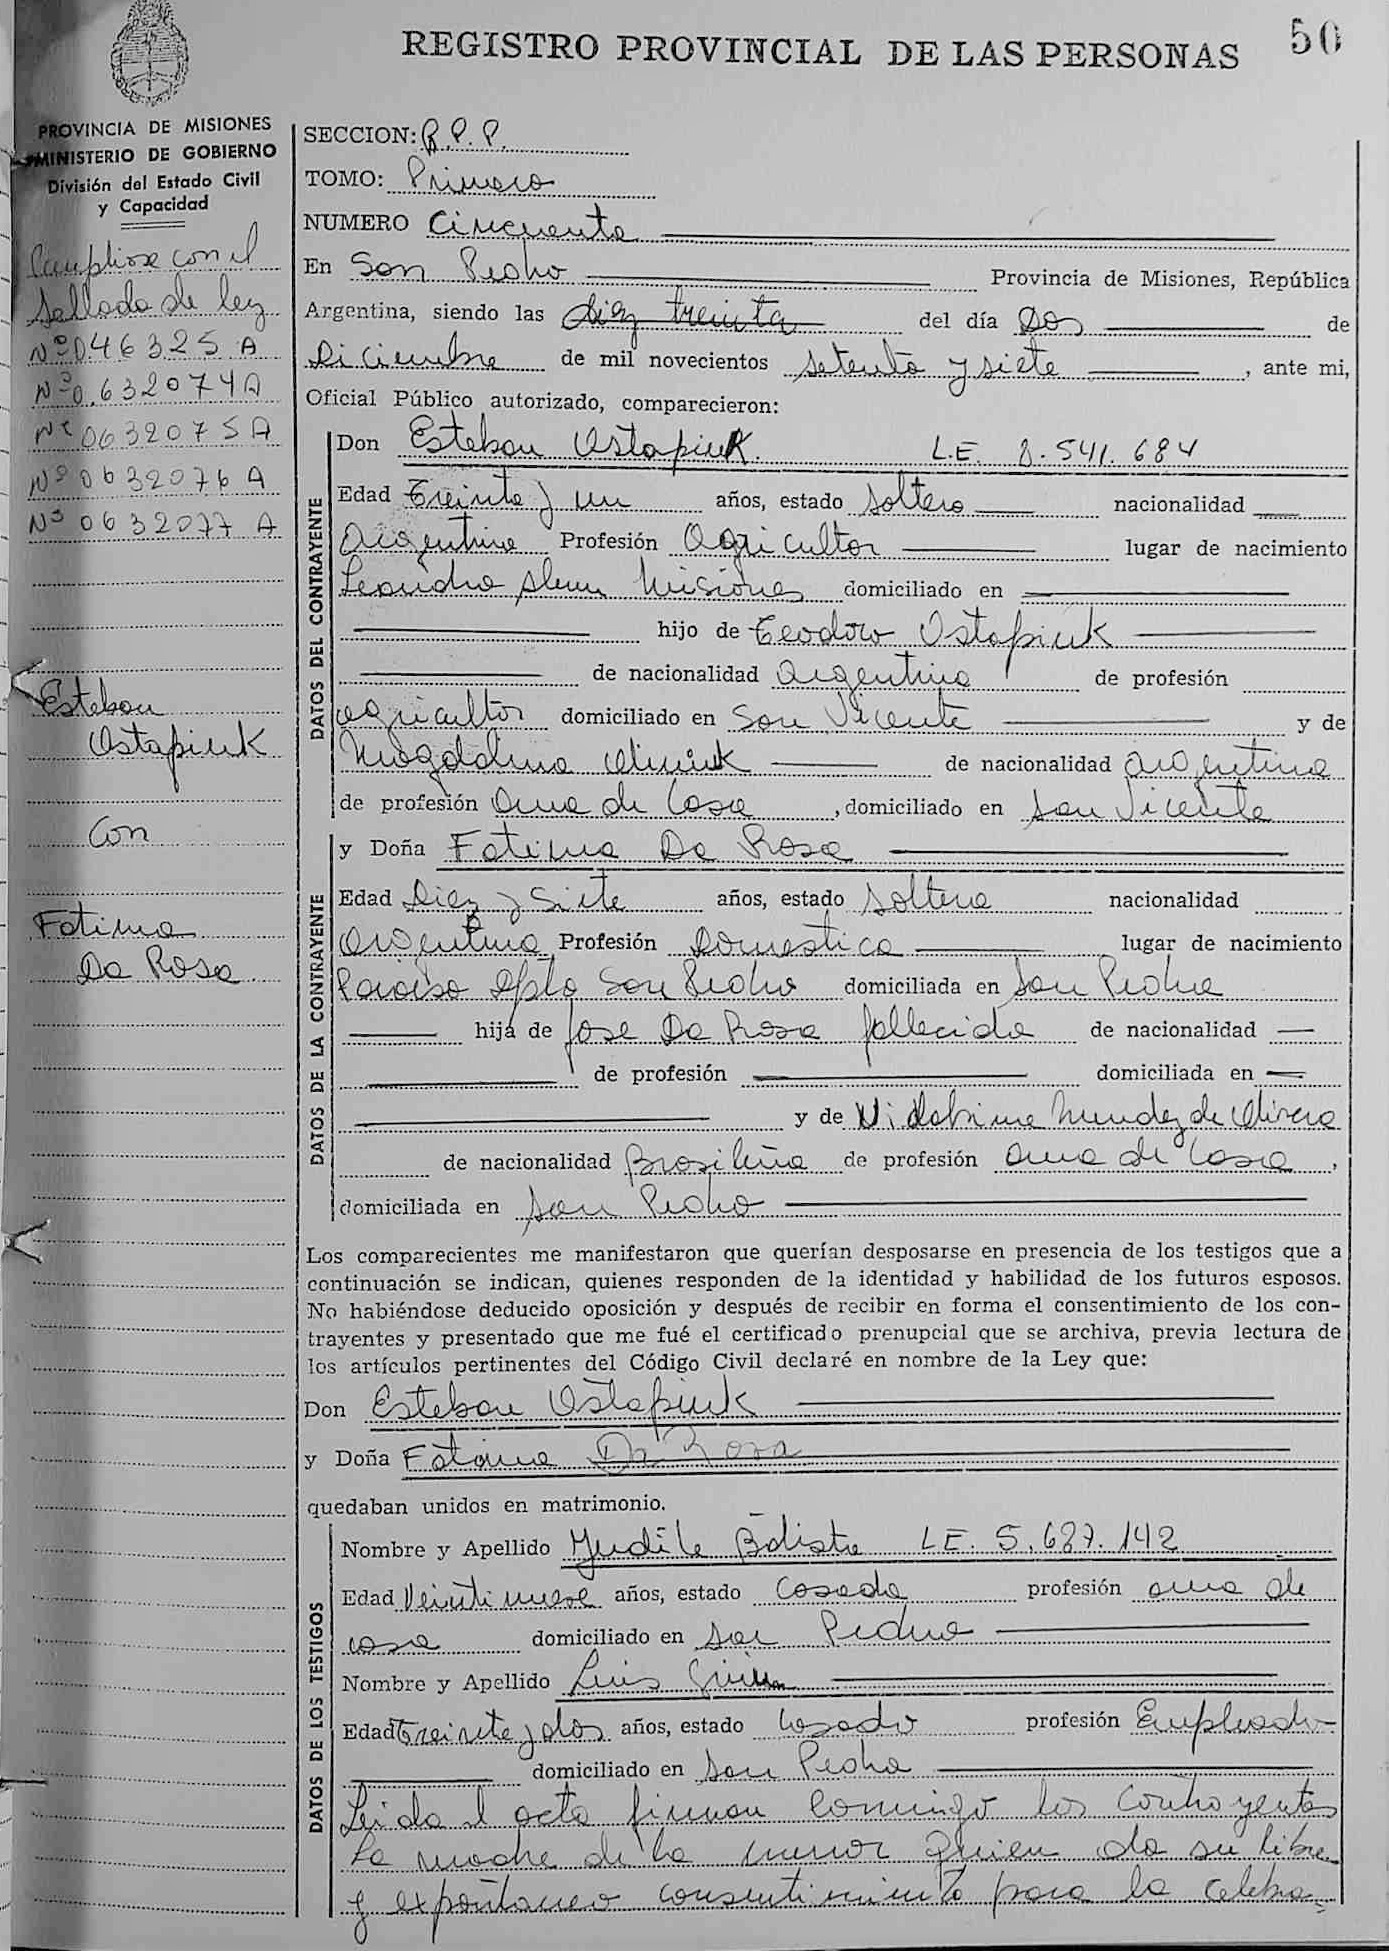 REGISTRO PROVINCIAL DE LAS PERSONAS
50
PROVINCIA DE MISIONES
MINISTERIO DE GOBIERNO
División del Estado Civil
y Capacidad
con el
Sellado de ley
Nº 046325 A
Nº 0.632074 A
Nº 0632075 A
Nº 0632076 A
Nº 0632077 A
Esteban
Ostapiuk
Con
Fatima
Da Rosa
SECCION: R.P.P.
TOMO: Primero
NUMERO Cincuenta
En San Pedro Provincia de Misiones, República
Argentina, siendo las diez treinta del día Dos de
Diciembre de mil novecientos setenta y siete, ante mi,
Oficial Público autorizado, comparecieron:
DATOS DEL CONTRAYENTE
Don Esteban Ostapiuk. L.E. 8.541.684
Edad Treinta y un años, estado soltero nacionalidad
Argentina Profesión Agricultor lugar de nacimiento
Leandro Alem Misiones domiciliado en
hijo de Teodoro Ostapiuk
de nacionalidad Argentina de profesión
agricultor domiciliado en San Vicente y de
Magdalena de nacionalidad argentina
de profesión Ama de Casa, domiciliado en San Vicente
DATOS DE LA CONTRAYENTE
y Doña Fatima Da Rosa
Edad Diez y Siete años, estado soltera nacionalidad
Argentina Profesión Domestica lugar de nacimiento
Paraiso Dpto San Pedro domiciliada en San Pedro
hija de Jose Da Rosa fallecido de nacionalidad
de profesión domiciliada en
y de Mendez de Olivera
de nacionalidad Brasileña de profesión Ama de Casa,
domiciliada en San Pedro
Los comparecientes me manifestaron que querían desposarse en presencia de los testigos que a
continuación se indican, quienes responden de la identidad y habilidad de los futuros esposos.
No habiéndose deducido oposición y después de recibir en forma el consentimiento de los con-
trayentes y presentado que me fué el certificado prenupcial que se archiva, previa lectura de
los artículos pertinentes del Código Civil declaré en nombre de la Ley que:
Don Esteban Ostapiuk
y Doña Fatima Da Rosa
quedaban unidos en matrimonio.
DATOS DE LOS TESTIGOS
Nombre y Apellido Batista L.E. 5.687.142
Edad Veintinueve años, estado Casada profesión ama de
casa domiciliado en San Pedro
Nombre y Apellido Luis
Edad Treinta y dos años, estado Casado profesión Empleado
domiciliado en San Pedro
Leida el acta firman conmigo los contrayentes
la madre de la menor quien da su libre
y expontaneo consentimiento para la celebra